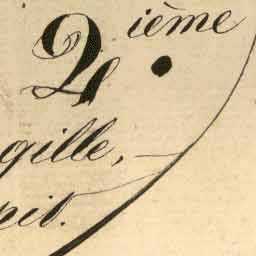 2ième
gille,
pit.